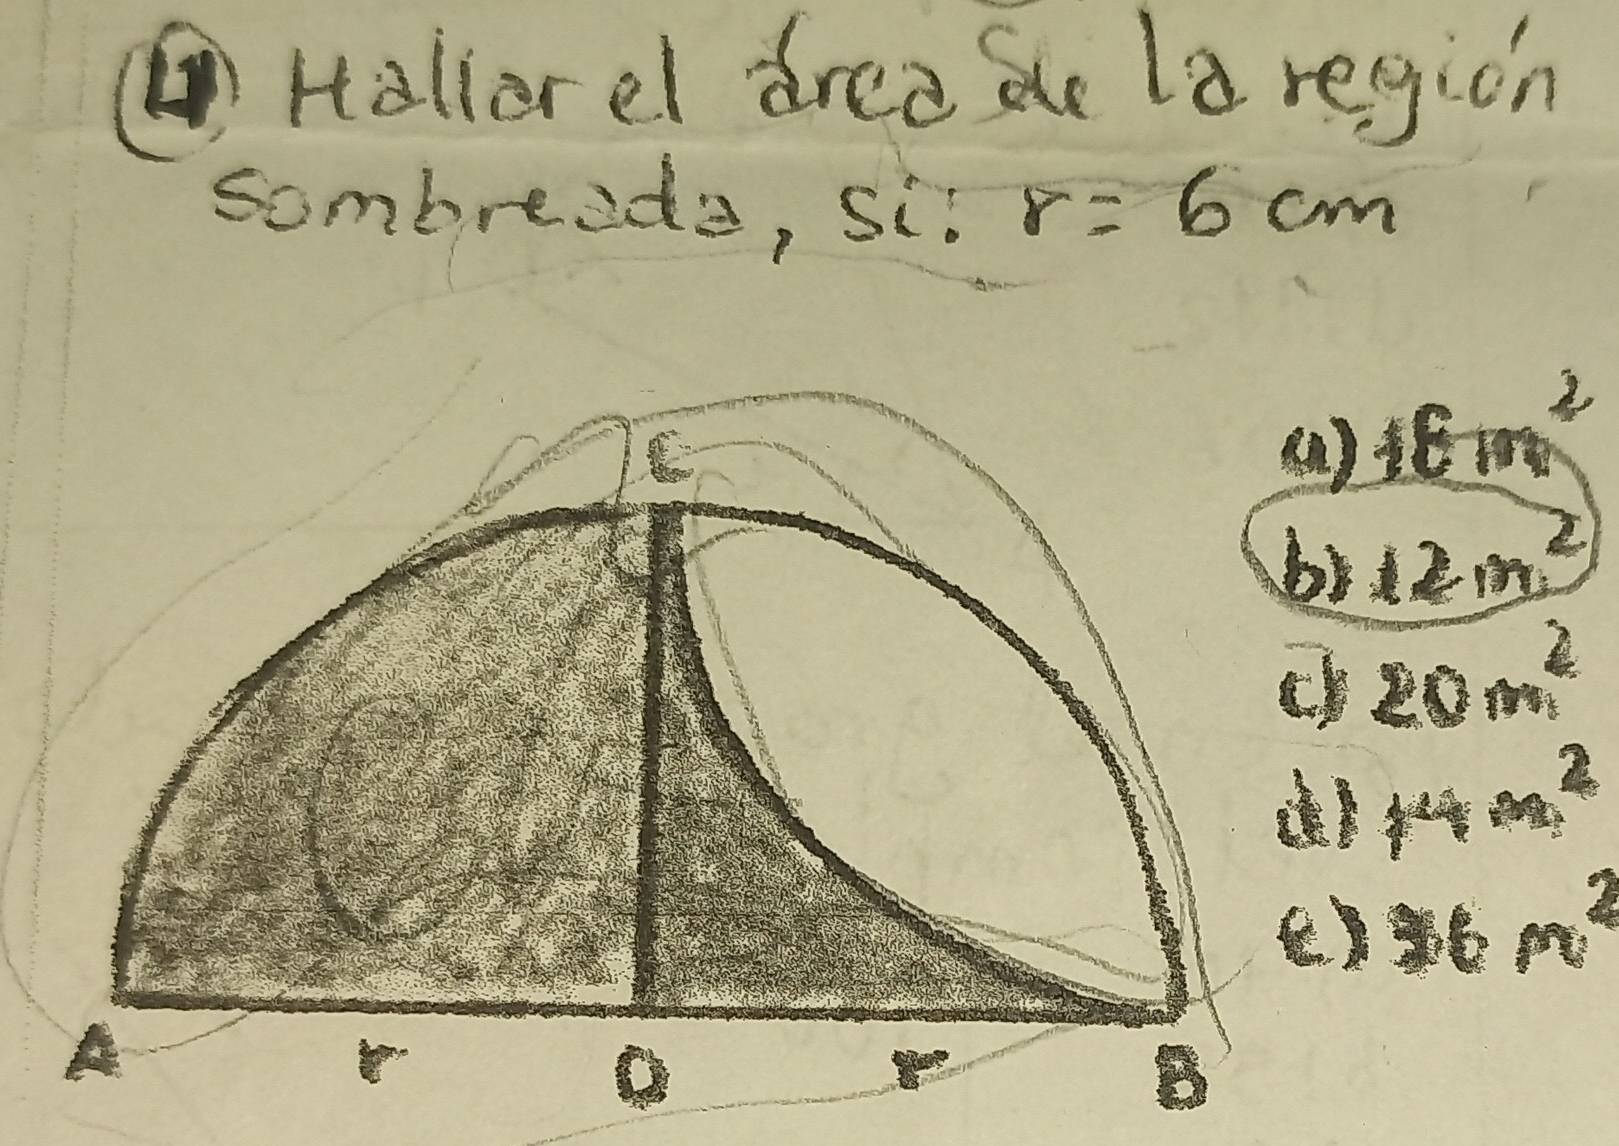 4 Hallar el área de la región
sombreada, si: r = 6 cm
C
a) 18 m²
b) 12 m²
c) 20 m²
d) 14 m²
e) 36 m²
A r O r B